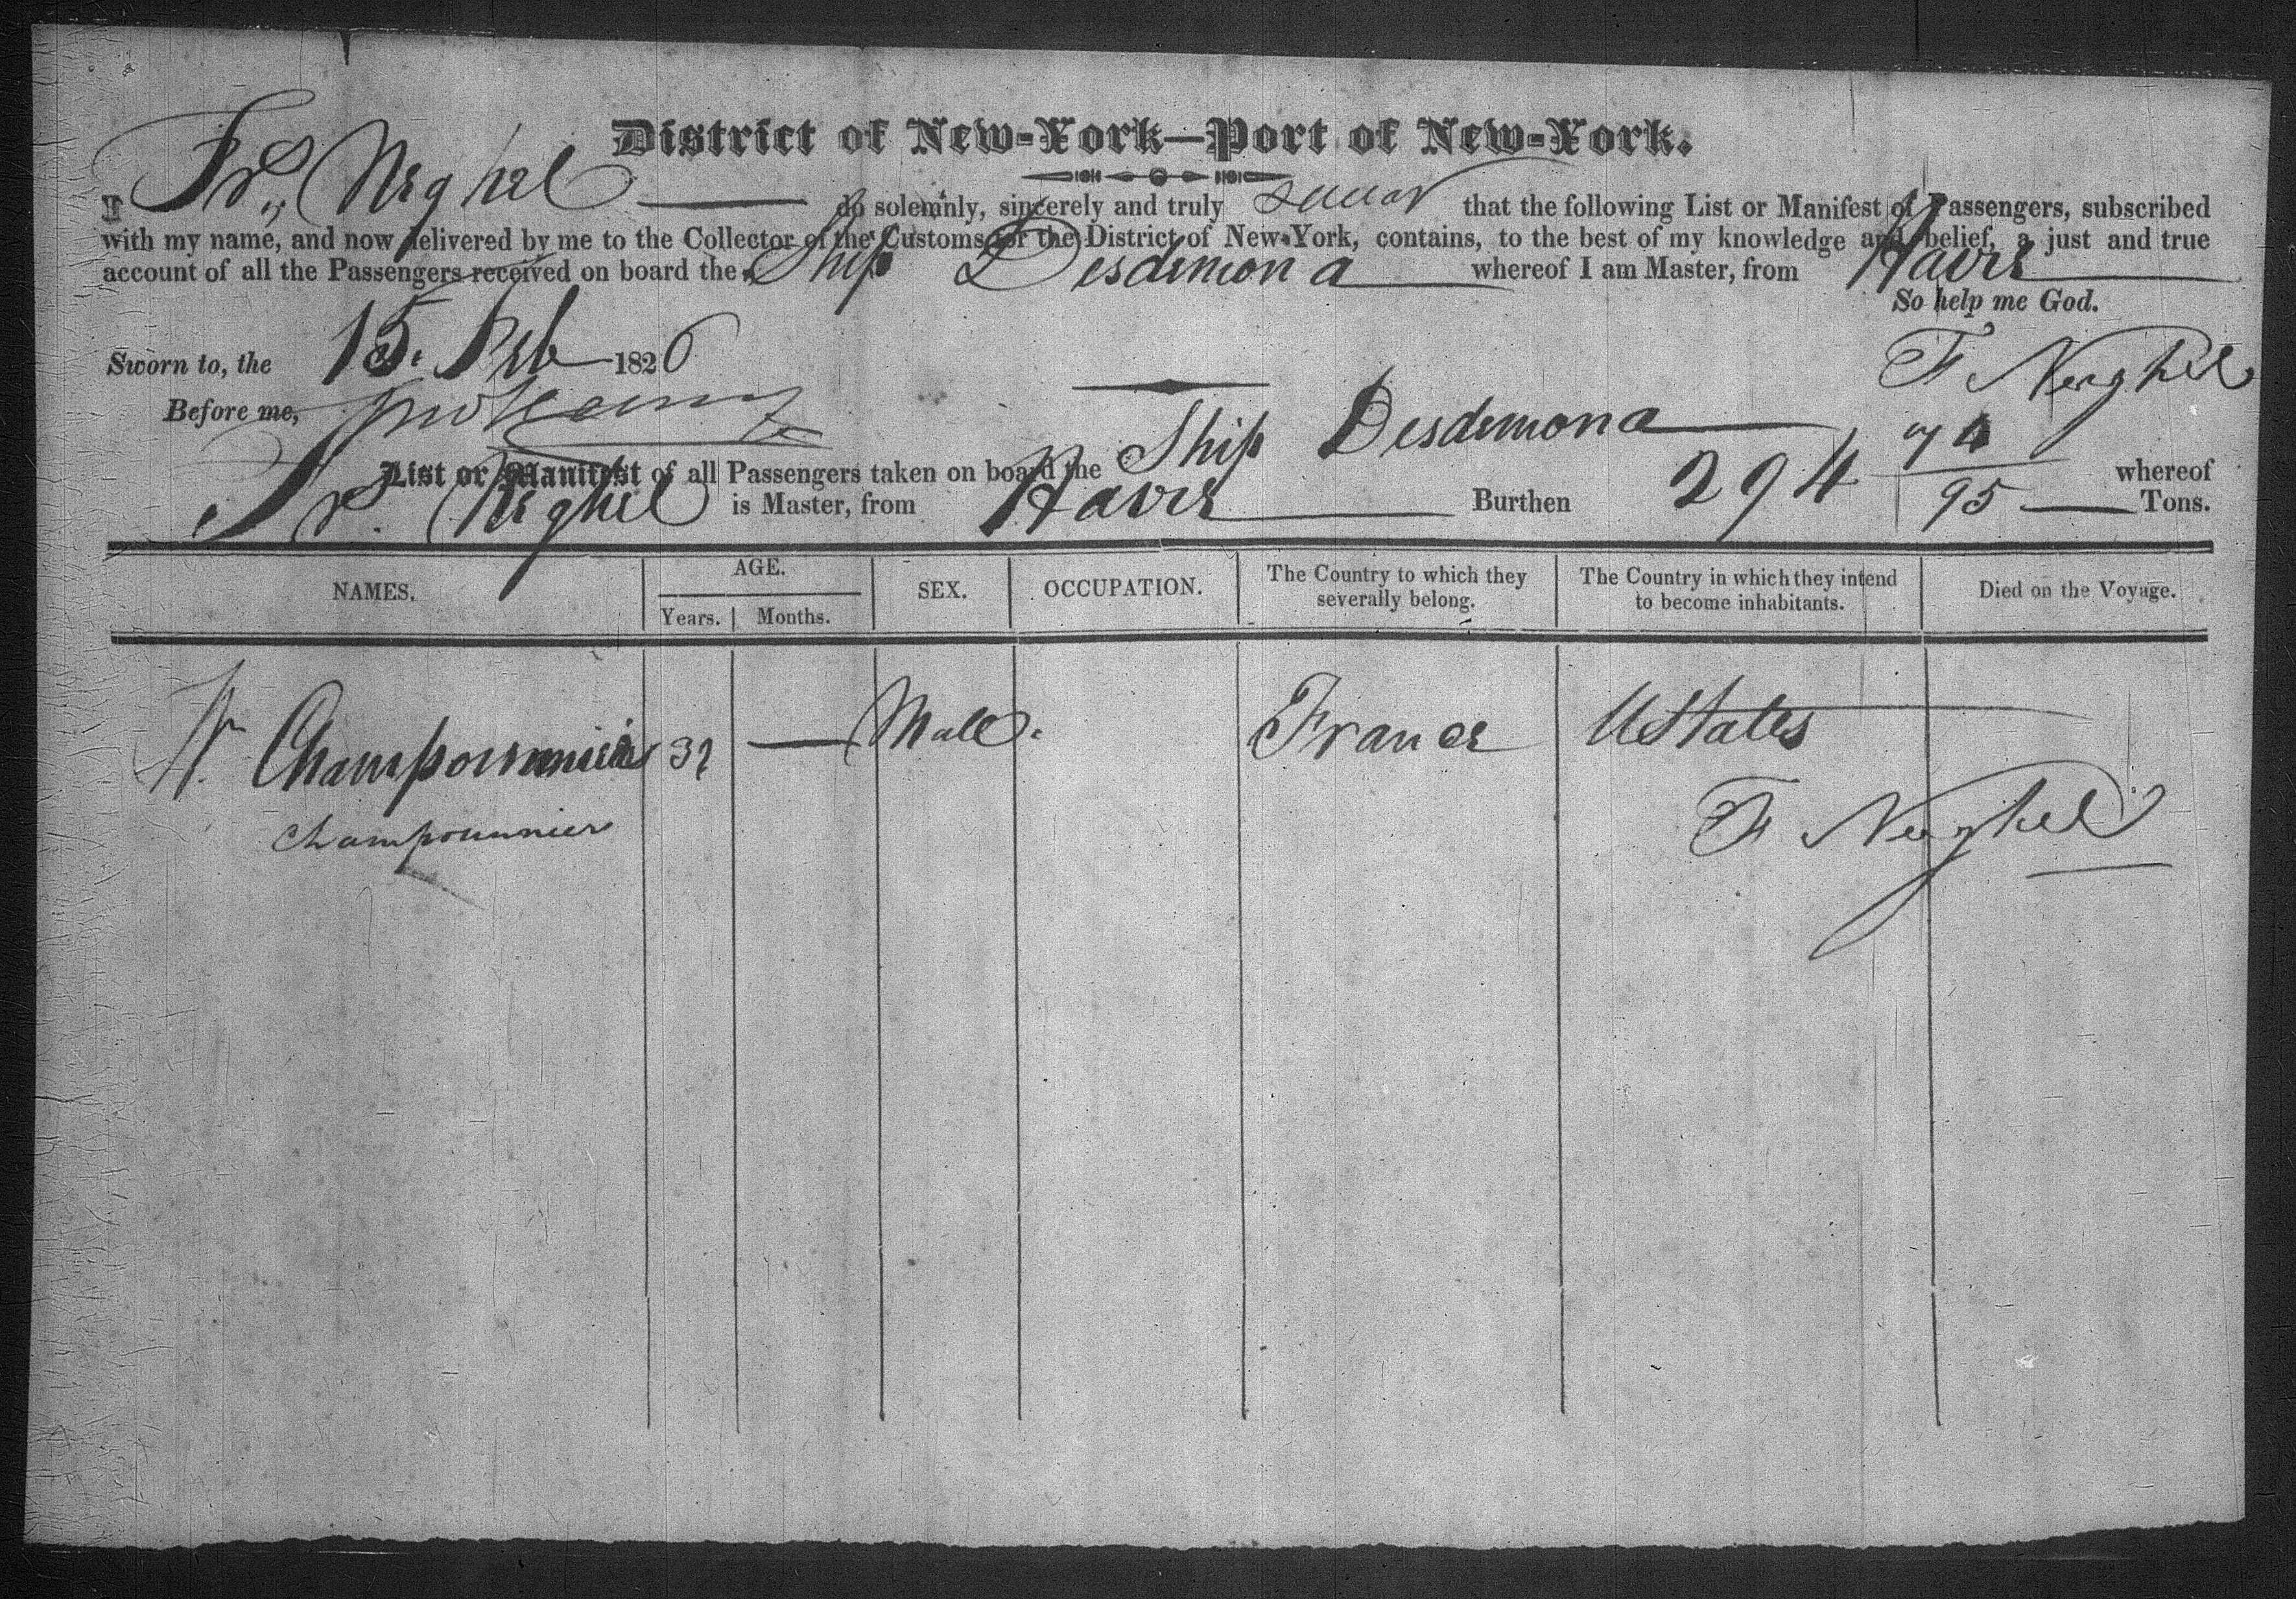 District of New-York—Port of New-York.
I Frs Neghel do solemnly, sincerely and truly swear that the following List or Manifest of Passengers, subscribed
with my name, and now delivered by me to the Collector of the Customs for the District of New-York, contains, to the best of my knowledge and belief, a just and true
account of all the Passengers received on board the Ship Desdemona whereof I am Master, from Havre
So help me God.
Sworn to, the 15. Feb 1826
F Neghel
Before me,
List or Manifest of all Passengers taken on board the Ship Desdemona whereof
Frs. Neghel is Master, from Havre Burthen 294 74/95 Tons.
NAMES. AGE. SEX. OCCUPATION. The Country to which they severally belong. The Country in which they intend to become inhabitants. Died on the Voyage.
Years. Months.
Champommier 32 — Male. France UStates
Champommier
F Neghel